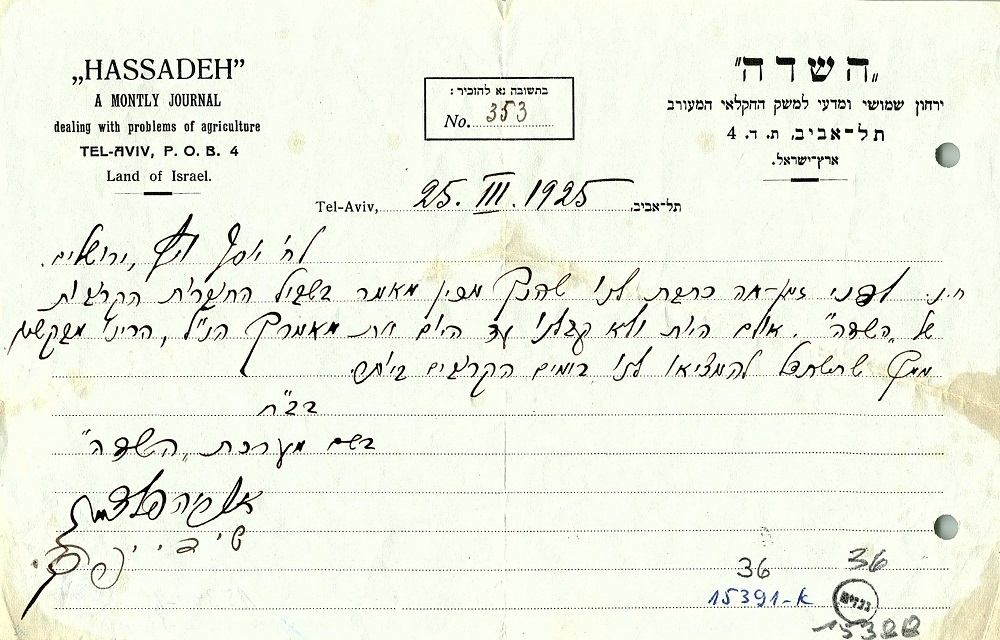 „HASSADEH”
A MONTLY JOURNAL
dealing with problems of agriculture
TEL-AVIV, P. O. B. 4
Land of Israel.
בתשובה נא להזכיר:
No. 353
„השדה”
ירחון שמושי ומדעי למשק החקלאי המעורב
תל-אביב, ת. ד. 4
ארץ־ישראל.
Tel-Aviv, 25. III. 1925 תל־אביב,
לח' יוסף ויץ, ירושלים.
ח.נ. לפני זמן-מה כתבת לנו שהנך מכין מאמר בשביל החוברת הקרובה
של „השדה”. אולם היות ולא קבלנו עד היום את מאמרך הנ"ל, הרינו מבקשים
ממך שתשתדל להמציאו לנו בימים הקרובים ביותר.
בב"ח
בשם מערכת „השדה”
36
36
15391-K